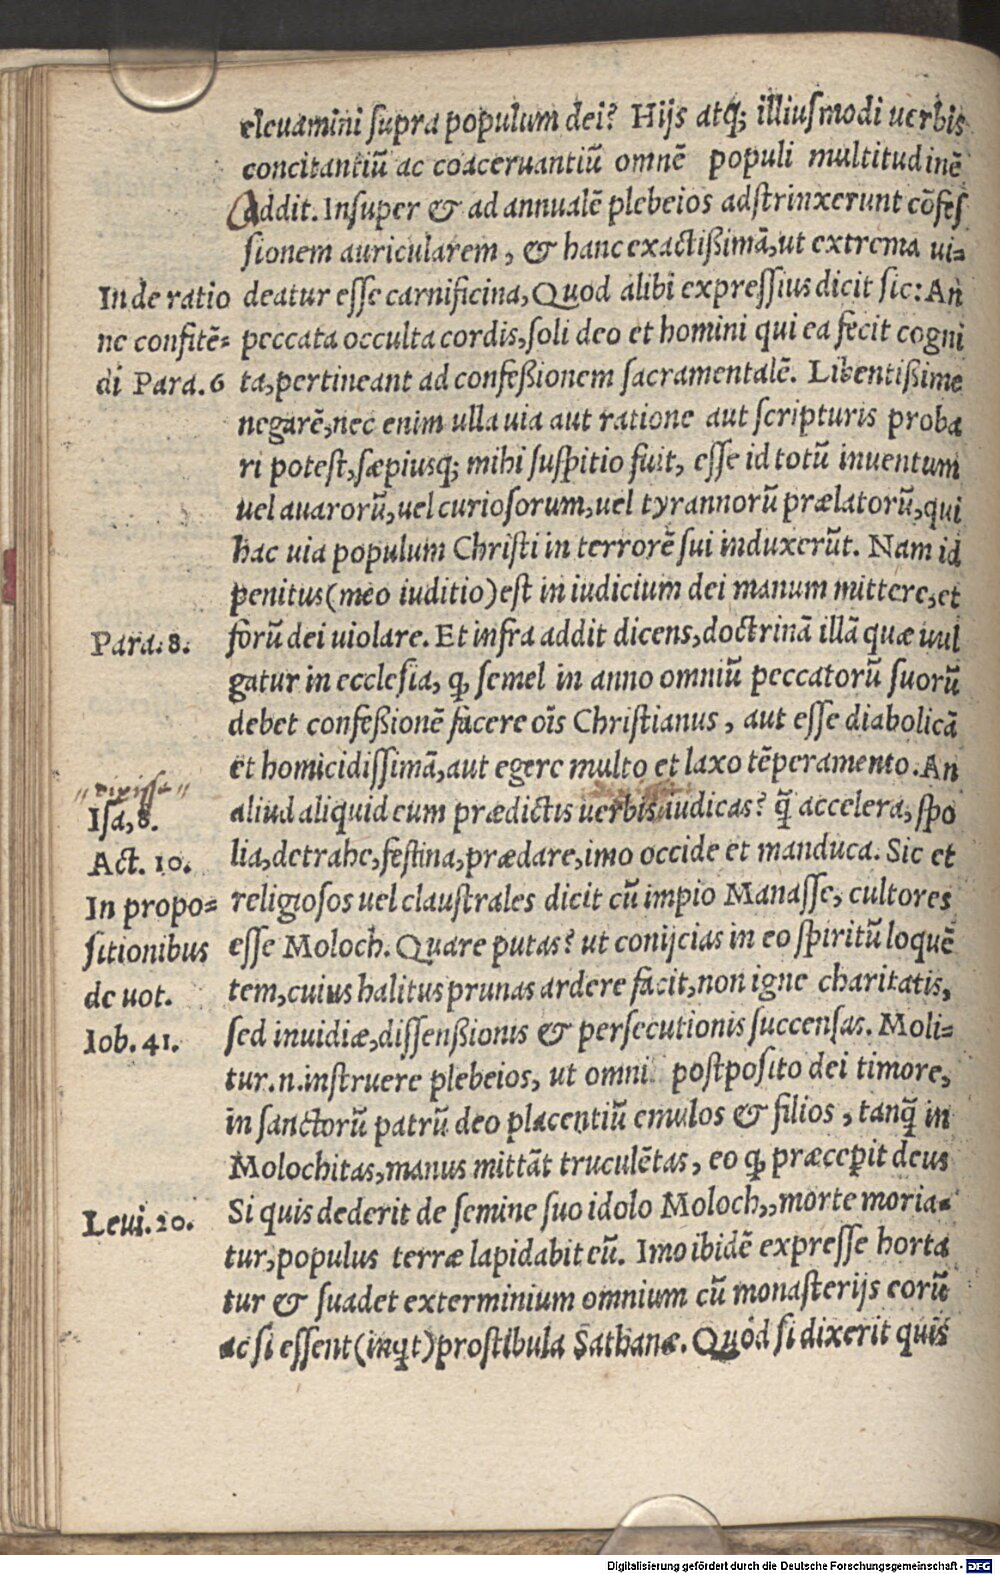 eleuamini supra populum dei? Hijs atq; illiusmodi uerbis
concitantiū ac coaceruantiū omnē populi multitudinē
addit. Insuper & ad annualē plebeios adstrinxerunt cōfes
sionem auricularem, & hanc exactißimā, ut extrema ui-
In de ratio
deatur esse carnificina, Quod alibi expressius dicit sic: An
ne confitē-
peccata occulta cordis, soli deo et homini qui ea fecit cogni
di Para. 6
ta, pertineant ad confeßionem sacramentalē. Libentißime
negarē, nec enim ulla uia aut ratione aut scripturis proba
ri potest, sæpiusq; mihi suspitio fuit, esse id totū inuentum
uel auarorū, uel curiosorum, uel tyrannorū prælatorū, qui
hac uia populum Christi in terrorē sui induxerūt. Nam id
penitus (meo iuditio) est in iudicium dei manum mittere, et
Para. 8.
forū dei uiolare. Et infra addit dicens, doctrinā illā quæ uul
gatur in ecclesia, ꝙ semel in anno omniū peccatorū suorū
debet confeßionē facere oīs Christianus, aut esse diabolicā
et homicidissimā, aut egere multo et laxo tēperamento. An
dixisse
Isa, 8.
aliud aliquid eum prædictis uerbis iudicas? q̄ accelera, spo
Act. 10.
lia, detrahe, festina, prædare, imo occide et manduca. Sic et
In propo-
religiosos uel claustrales dicit cū impio Manasse, cultores
sitionibus
esse Moloch. Quare putas? ut conijcias in eo spiritū loquē
de uot.
tem, cuius halitus prunas ardere facit, non igne charitatis,
Iob. 41.
sed inuidiæ, dissenßionis & persecutionis succensas. Moli-
tur .n. instruere plebeios, ut omni postposito dei timore,
in sanctorū patrū deo placentiū emulos & filios, tanq̄ in
Molochitas, manus mittāt truculētas, eo ꝙ præcepit deus
Leui. 20.
Si quis dederit de semine suo idolo Moloch,, morte moria-
tur, populus terræ lapidabit eū. Imo ibidē expresse horta
tur & suadet exterminium omnium cū monasterijs eorū
ac si essent (inq̇t) prostibula Sathanæ. Quód si dixerit quis